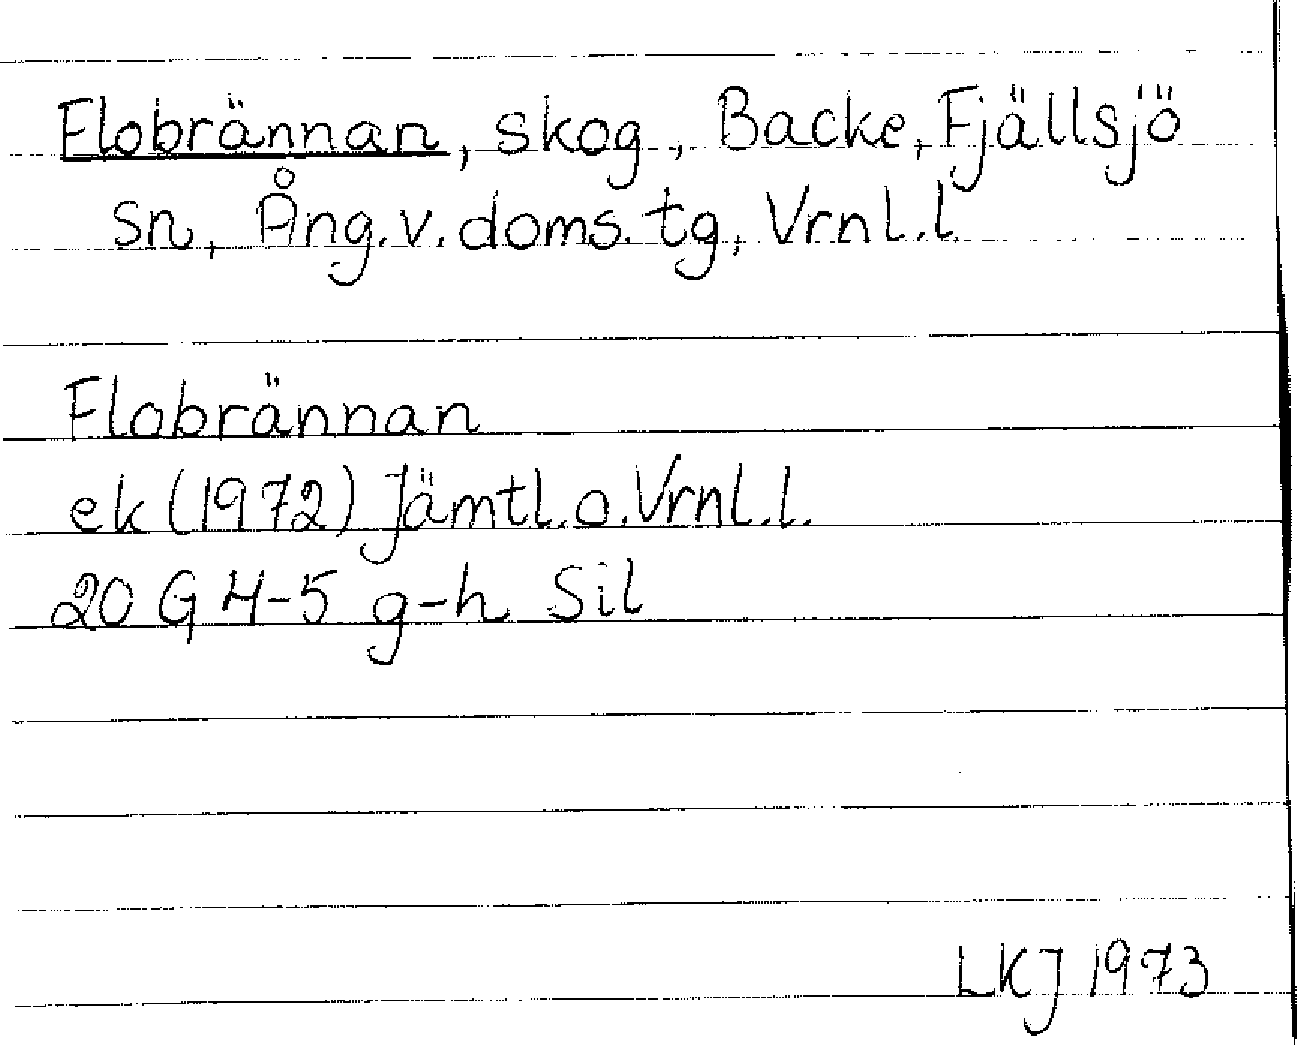 Flobrännan, skog, Backe, Fjällsjö
sn, Ång.v.doms.tg, Vrnl.l.
Flobrännan
ek (1972) Jämtl.o.Vrnl.l.
20 G 4-5 g-h Sil
LKJ 1973